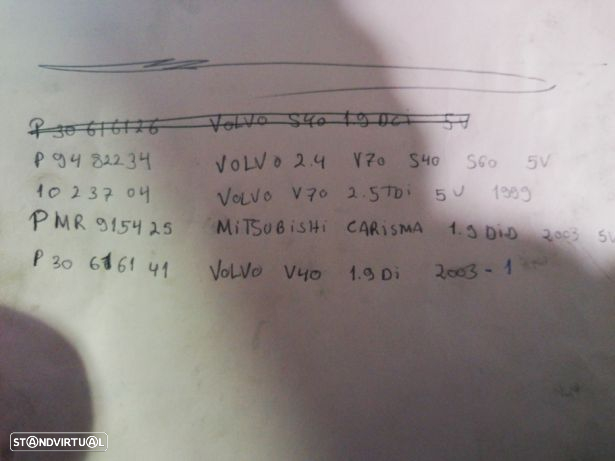 P 30 616126 VOLVO S40 1.9 DCi 5V
P 94 82234 VOLVO 2.4 V70 S40 S60 5V
10 237 04 VOLVO V70 2.5TDi 5V 1999
PMR 915425 MiTSUBiSHi CARiSMA 1.9 DiD 2003 5V
P 30 6161 41 VOLVO V40 1.9Di 2003-1
STANDVIRTUAL